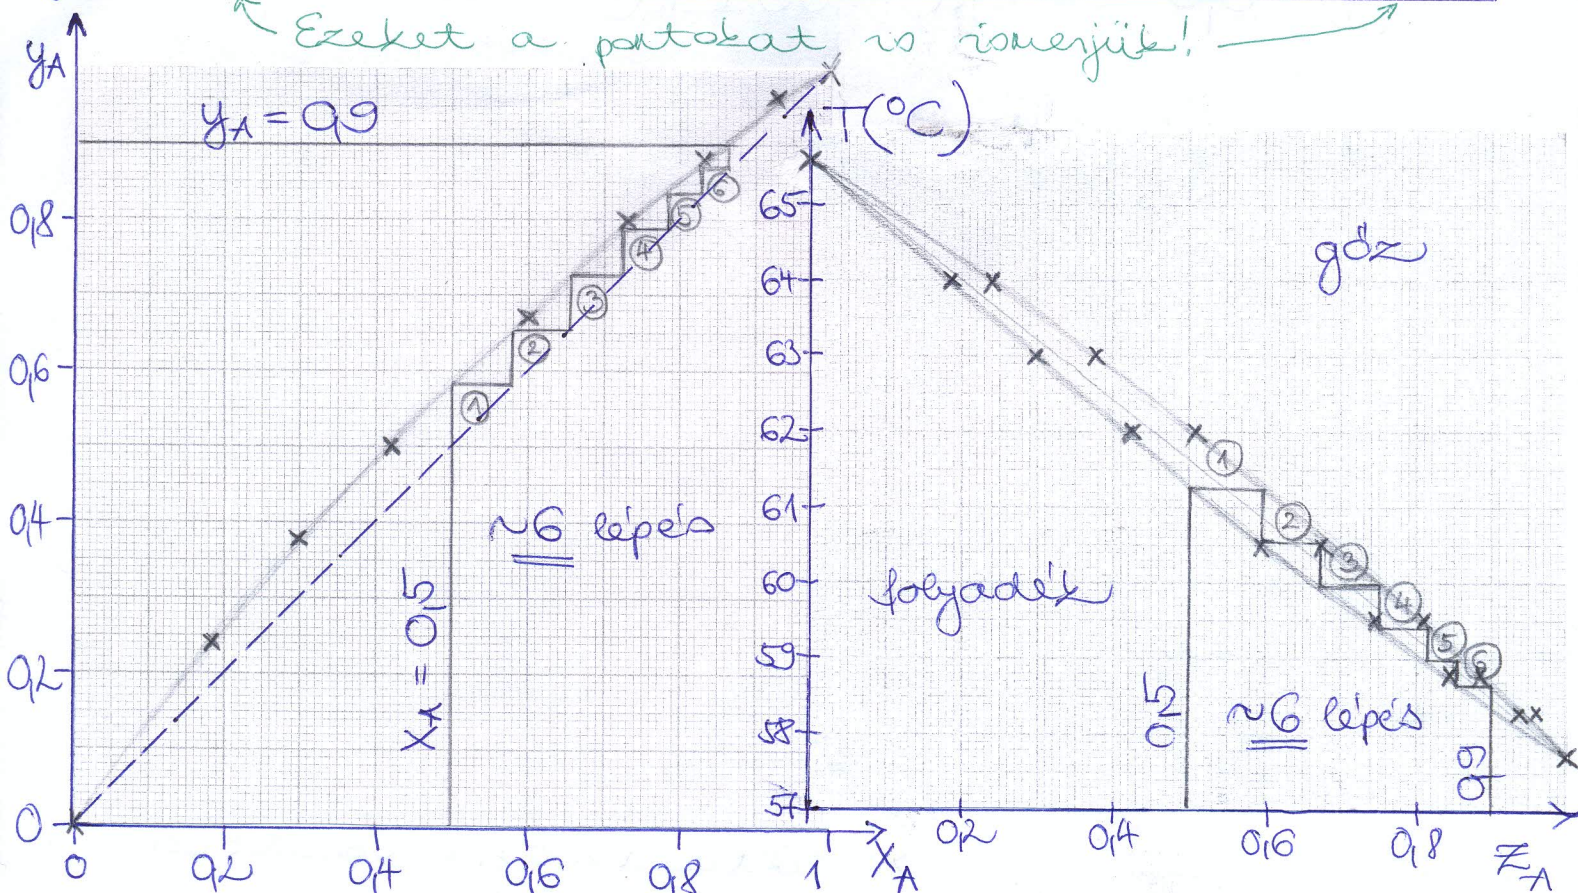 Ezeket a pontokat is ismerjük!
yA
yA = 0,9
T(°C)
0,8
0,6
0,4
0,2
0
0
0,2
0,4
0,6
0,8
1
XA
XA = 0,5
~6 lépés
1
2
3
4
5
6
65
64
63
62
61
60
59
58
57
gőz
folyadék
1
2
3
4
5
6
0,5
~6 lépés
0,9
0,2
0,4
0,6
0,8
ZA